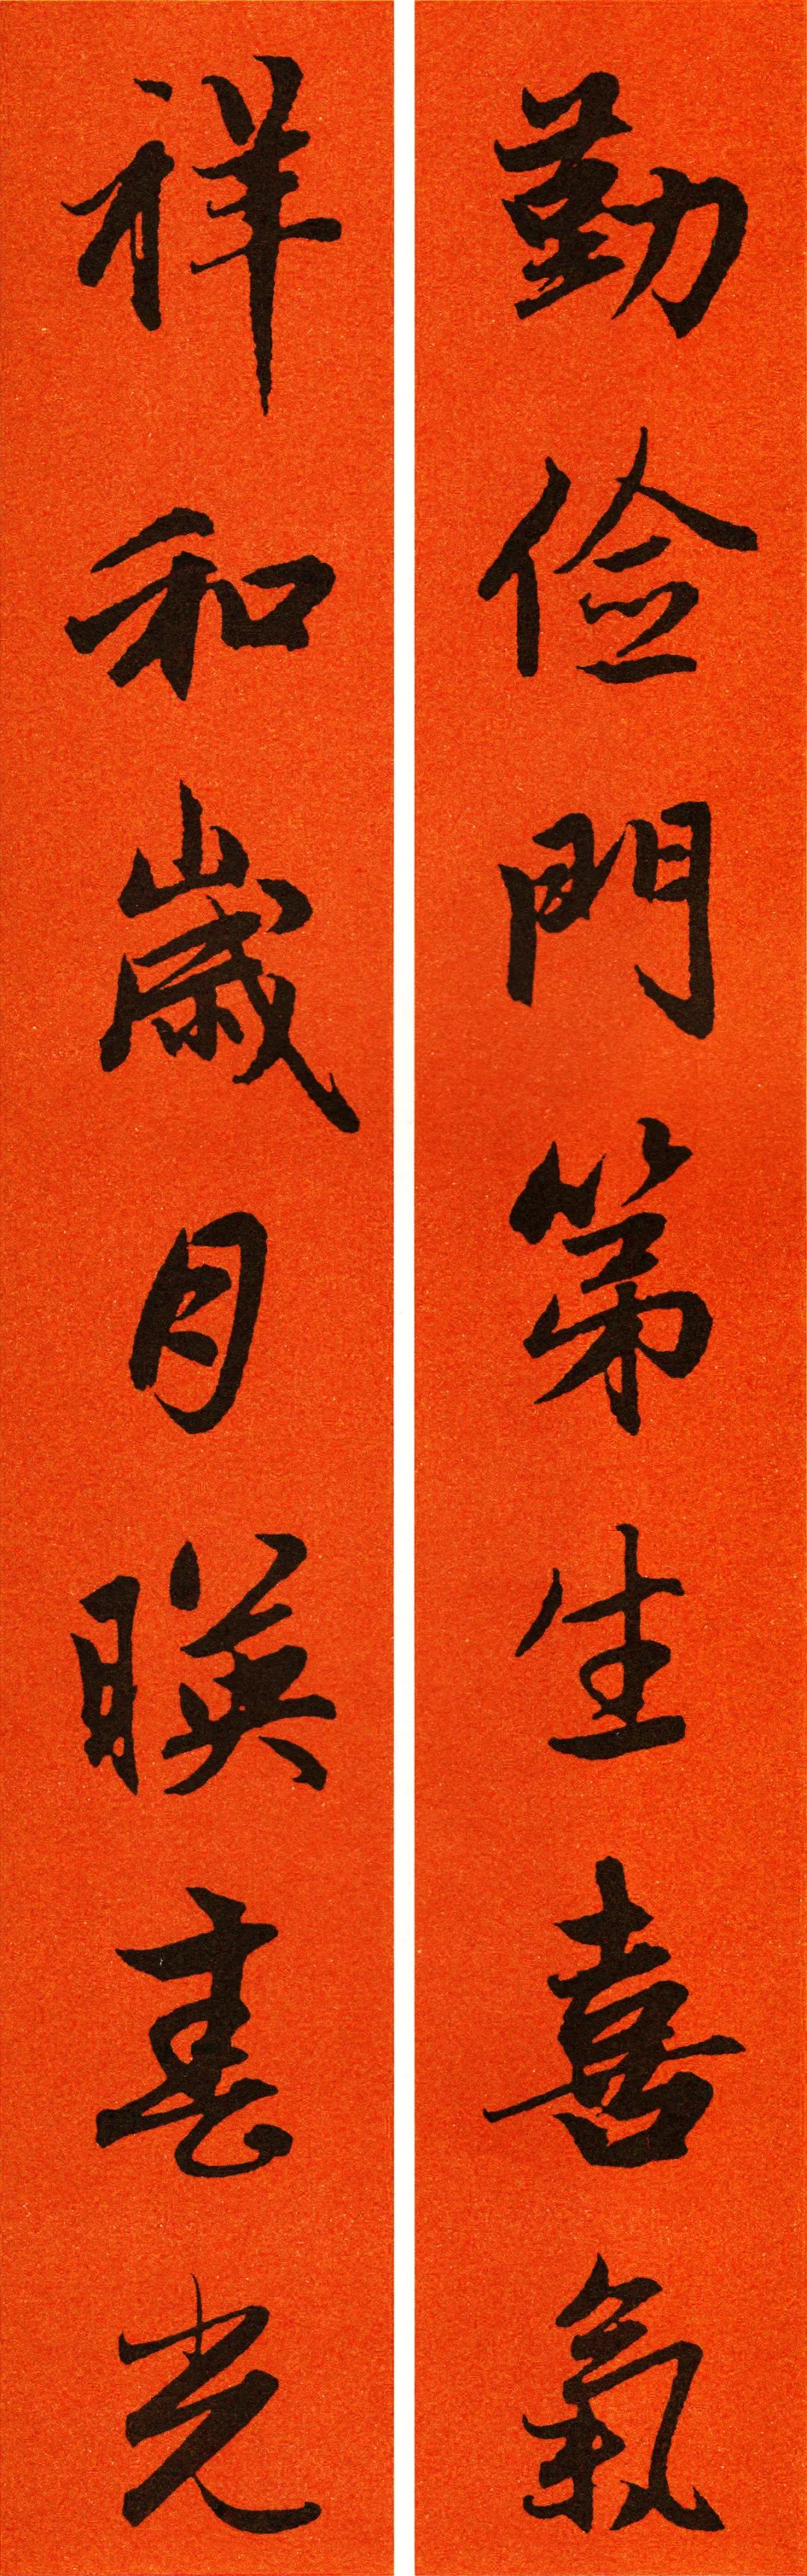 勤俭門第生喜氣
祥和歲月暎春光